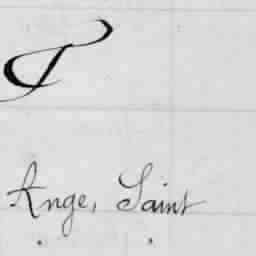 Ange, Saint